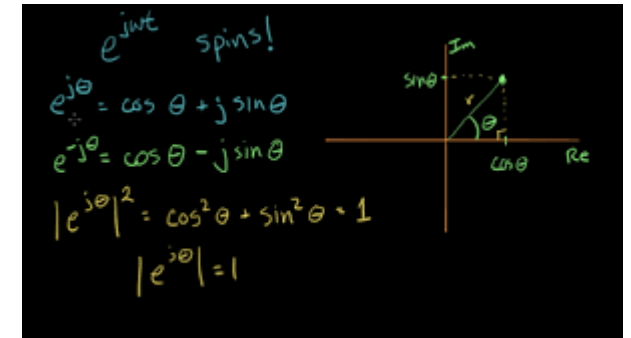 e^{jωt} spins!
e^{jθ} = cos θ + j sin θ
e^{-jθ} = cos θ - j sin θ
|e^{jθ}|^2 = cos^2 θ + sin^2 θ = 1
|e^{jθ}| = 1
Im
sin θ
r
θ
cos θ
Re